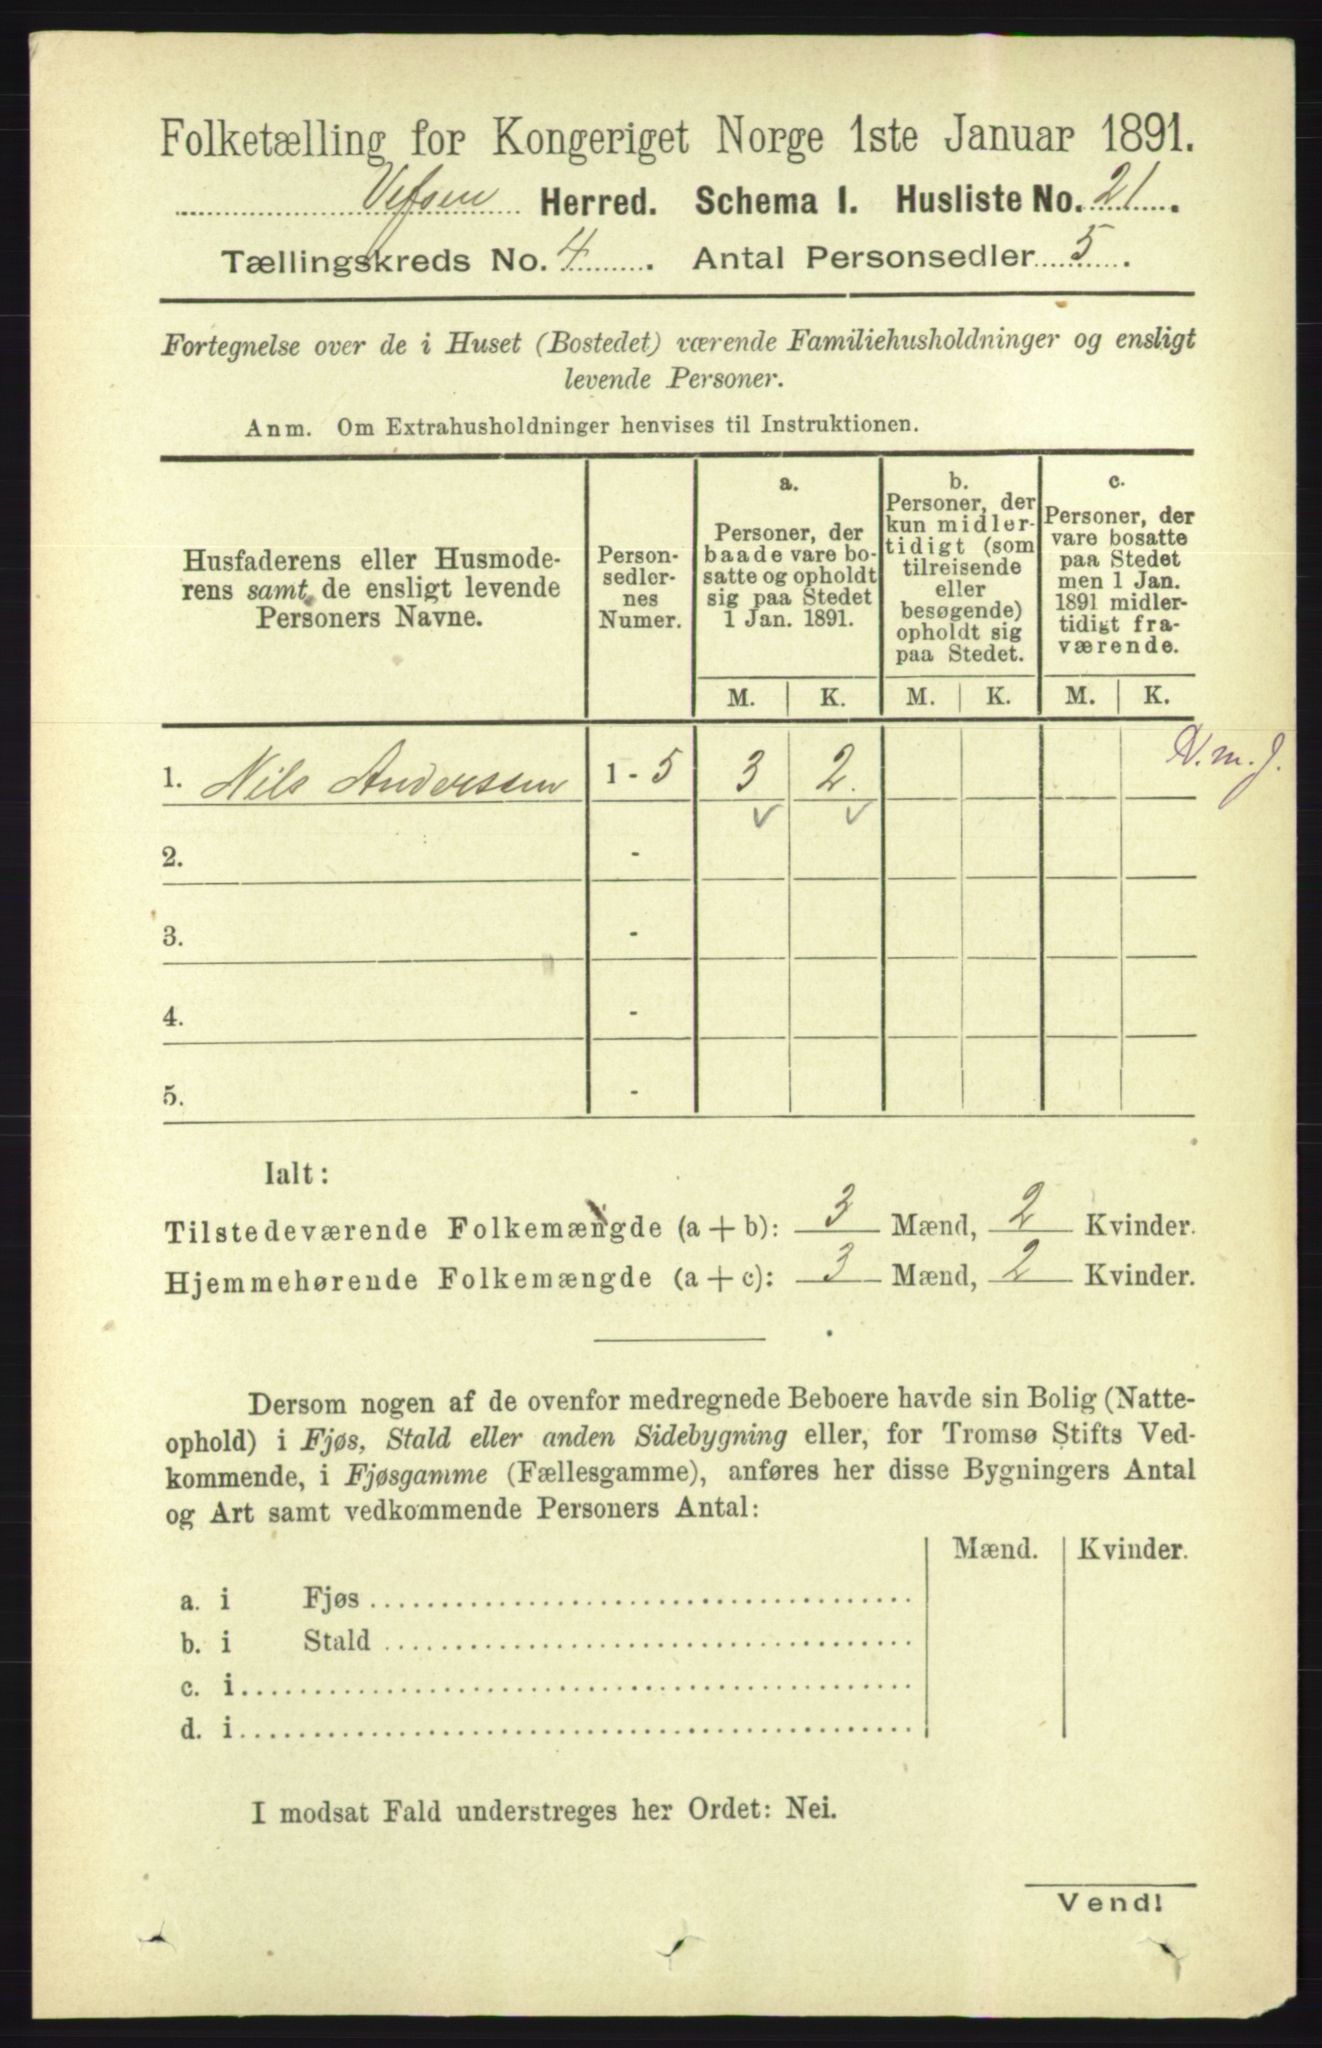 Folketælling for Kongeriget Norge 1ste Januar 1891.
Vefsen Herred. Schema I. Husliste No. 21.
Tællingskreds No. 4. Antal Personsedler 5.
Fortegnelse over de i Huset (Bostedet) værende Familiehusholdninger og ensligt
levende Personer.
Anm. Om Extrahusholdninger henvises til Instruktionen.
Husfaderens eller Husmode-
rens samt de ensligt levende
Personers Navne.
Person-
sedler-
nes
Numer.
a.
Personer, der
baade vare bo-
satte og opholdt
sig paa Stedet
1 Jan. 1891.
b.
Personer, der
kun midler-
tidigt (som
tilreisende
eller
besøgende)
opholdt sig
paa Stedet.
c.
Personer, der
vare bosatte
paa Stedet
men 1 Jan.
1891 midler-
tidigt fra-
værende.
M. K. M. K. M. K.
1. Nils Anderssen 1 - 5 3 2.
2. -
3. -
4. -
5. -
Ialt:
Tilstedeværende Folkemængde (a + b): 3 Mænd, 2 Kvinder.
Hjemmehørende Folkemængde (a + c): 3 Mænd, 2 Kvinder.
Dersom nogen af de ovenfor medregnede Beboere havde sin Bolig (Natte-
ophold) i Fjøs, Stald eller anden Sidebygning eller, for Tromsø Stifts Ved-
kommende, i Fjøsgamme (Fællesgamme), anføres her disse Bygningers Antal
og Art samt vedkommende Personers Antal:
Mænd. Kvinder.
a. i Fjøs
b. i Stald
c. i
d. i
I modsat Fald understreges her Ordet: Nei.
Vend!